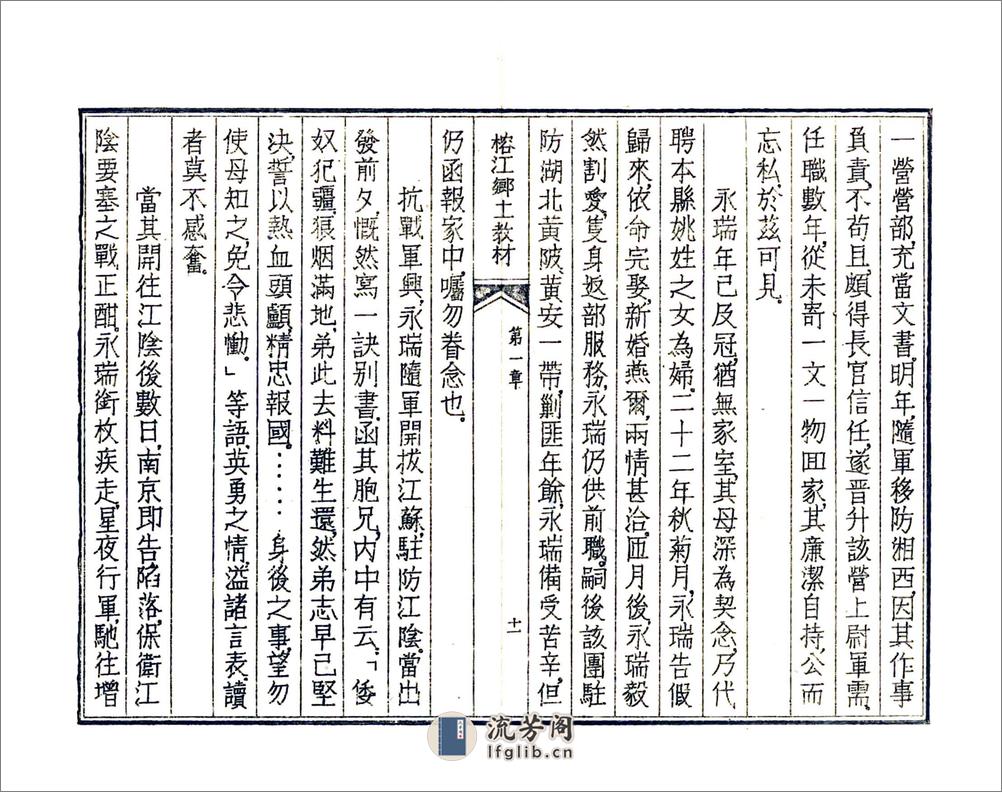 一營營部，充當文書，明年，隨軍移防湘西，因其作事
負責，不苟且，頗得長官信任，遂晋升該營上尉軍需，
任職數年，從未寄一文一物回家，其廉潔自持，公而
忘私，於茲可見。
永瑞年已及冠，猶無家室，其母深為契念，乃代
聘本縣姚姓之女為婦，二十二年秋菊月，永瑞告假
歸來，依命完娶，新婚燕爾，兩情甚洽，匝月後，永瑞毅
然割愛，隻身返部服務，永瑞仍供前職，嗣後該團駐
防湖北黄陂，黄安一帶，剿匪年餘，永瑞備受苦辛，但
榕江鄉土教材
第一章
十一
仍函報家中，囑勿眷念也。
抗戰軍興，永瑞隨軍開拔江蘇，駐防江陰。當出
發前夕，慨然寫一訣别書，函其胞兄，内中有云：「倭
奴犯疆，狼烟滿地，弟此去料難生還，然弟志早已堅
決，誓以熱血頭顱，精忠報國。……身後之事，望勿
使母知之，免令悲慟。」等語，英勇之情，溢諸言表，讀
者莫不感奮。
當其開往江陰後數日，南京即告陷落，保衛江
陰要塞之戰正酣。永瑞銜枚疾走，星夜行軍，馳往增
流芳阁
lfglib.cn